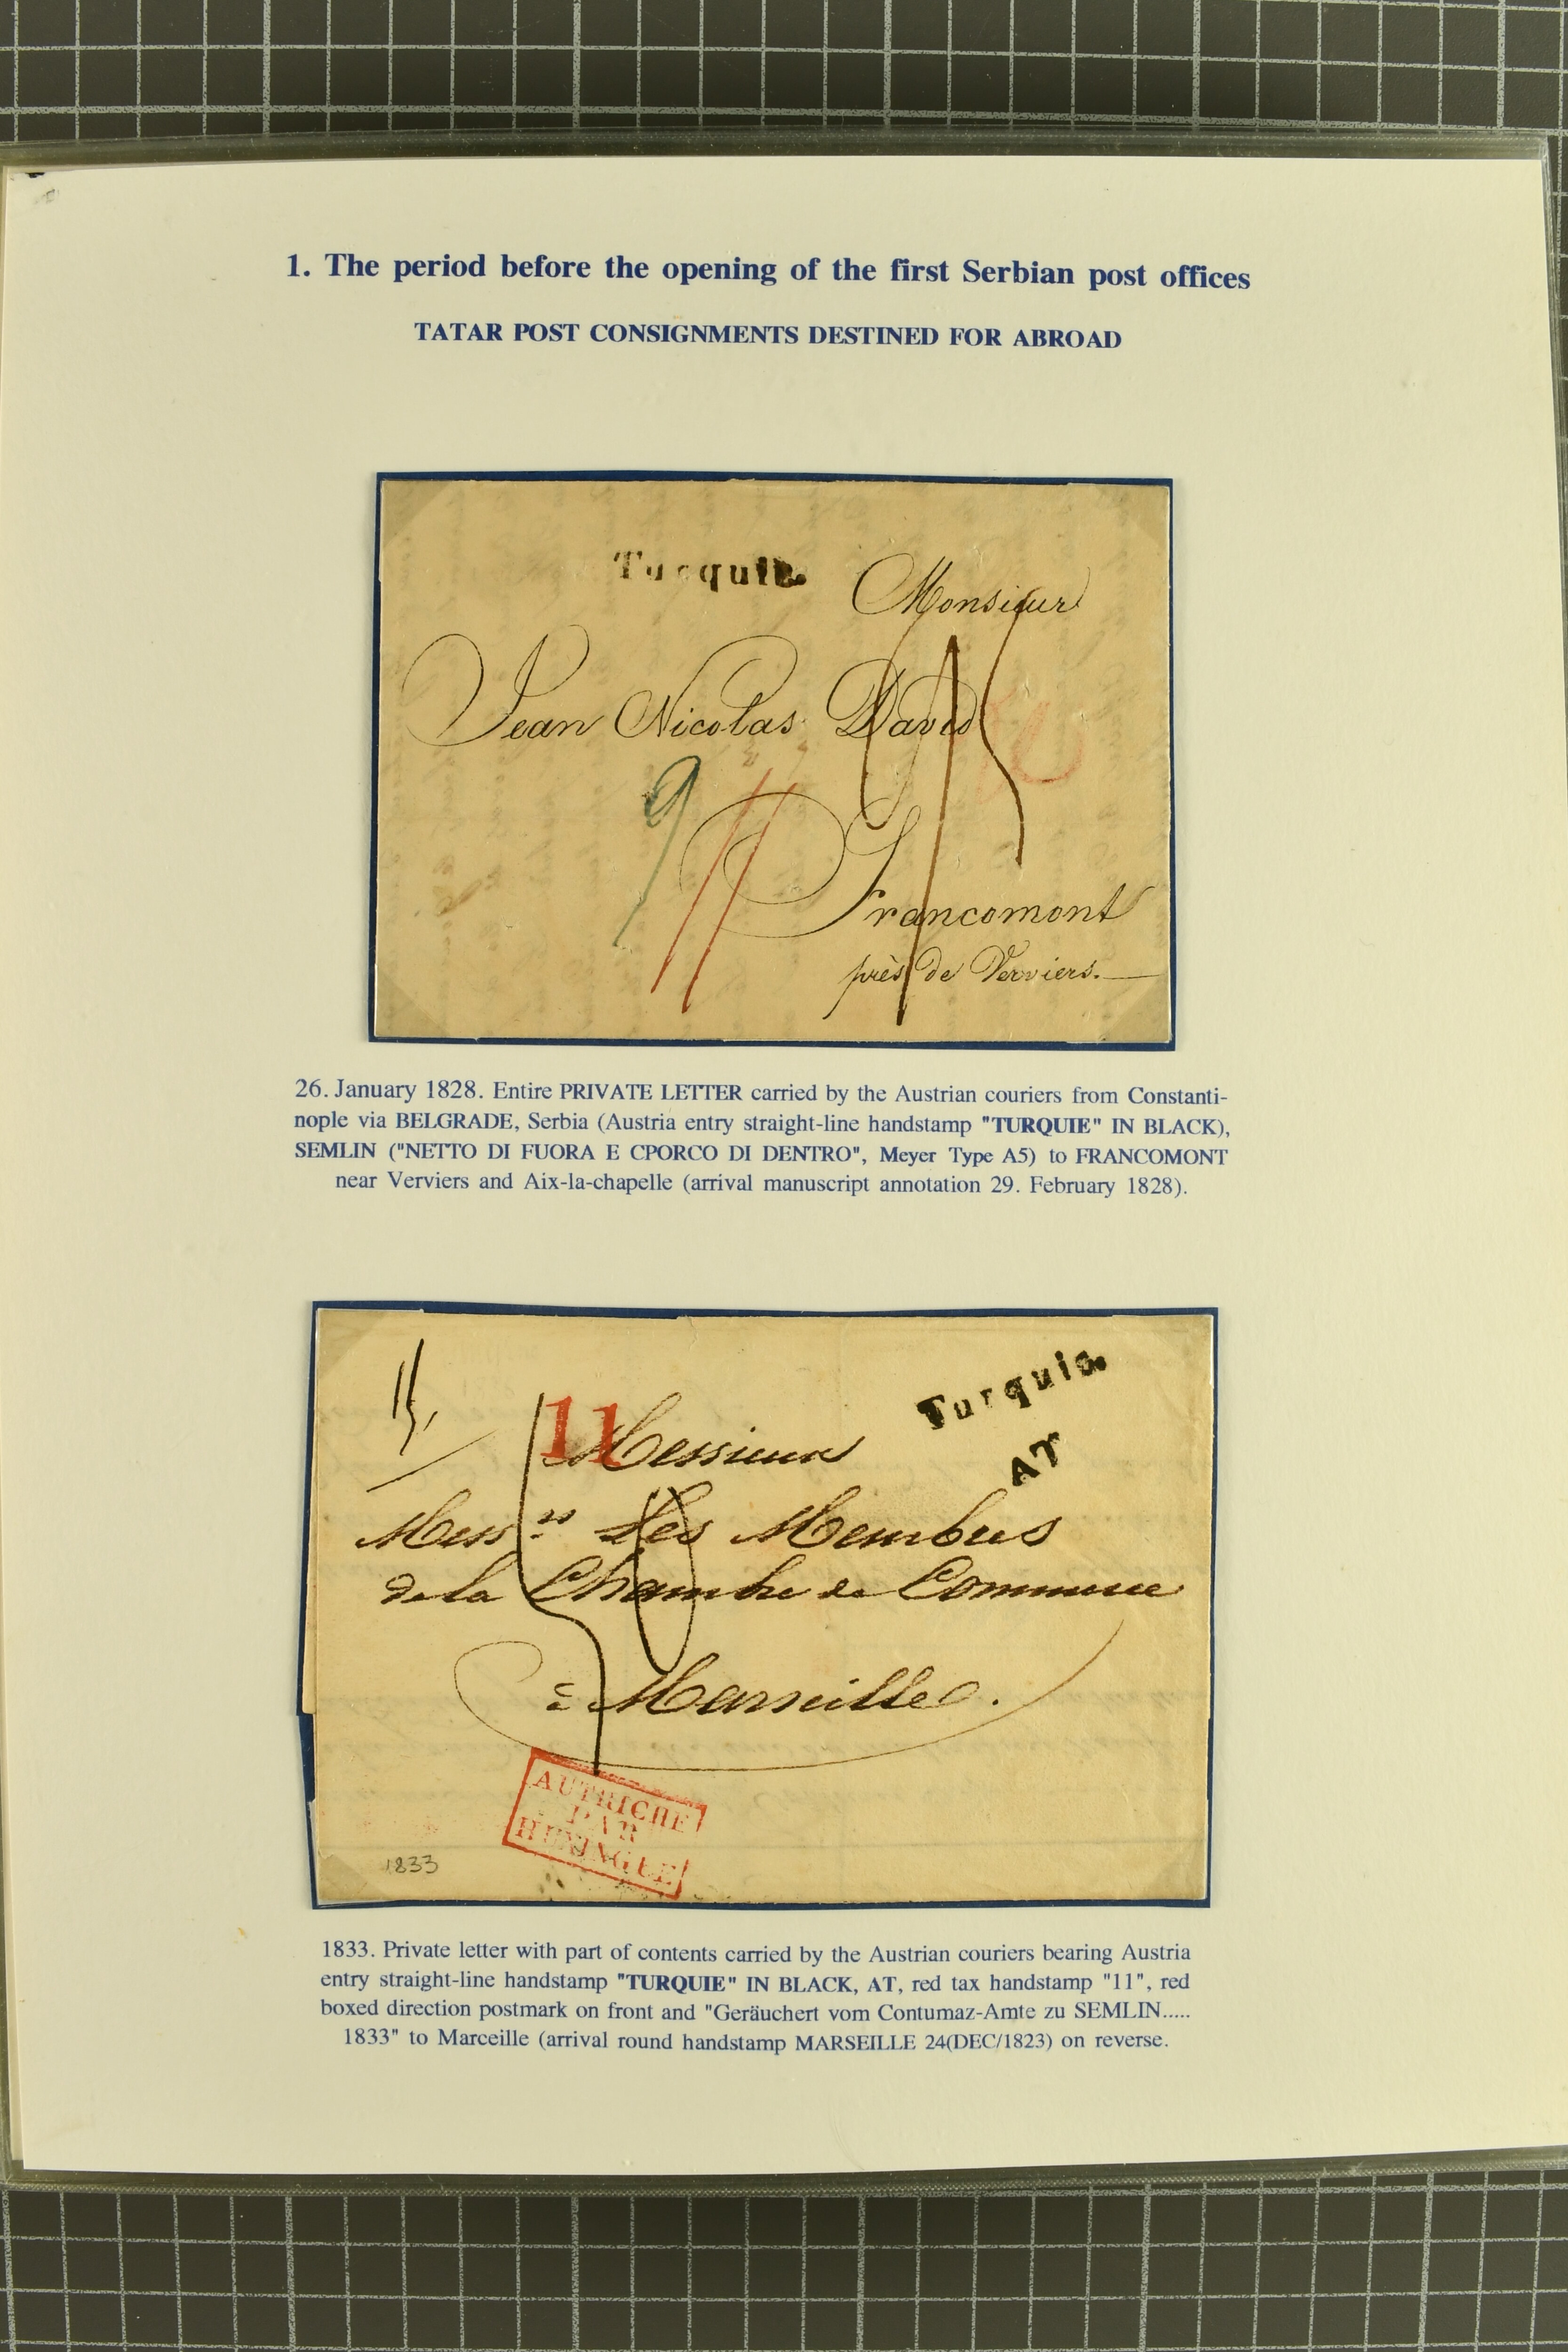 1. The period before the opening of the first Serbian post offices
TATAR POST CONSIGNMENTS DESTINED FOR ABROAD
Turquie.
Monsieur
Jean Nicolas David
9
Francomont
près de Verviers.
26. January 1828. Entire PRIVATE LETTER carried by the Austrian couriers from Constanti-
nople via BELGRADE, Serbia (Austria entry straight-line handstamp "TURQUIE" IN BLACK),
SEMLIN ("NETTO DI FUORA E CPORCO DI DENTRO", Meyer Type A5) to FRANCOMONT
near Verviers and Aix-la-chapelle (arrival manuscript annotation 29. February 1828).
Turquie.
AT
11
Messieurs
Mess.rs Les Membres
de la Chambre de Commerce
à Marseille.
AUTRICHE
PAR
HUNINGUE
1833
1833. Private letter with part of contents carried by the Austrian couriers bearing Austria
entry straight-line handstamp "TURQUIE" IN BLACK, AT, red tax handstamp "11", red
boxed direction postmark on front and "Geräuchert vom Contumaz-Amte zu SEMLIN.....
1833" to Marceille (arrival round handstamp MARSEILLE 24(DEC/1823) on reverse.